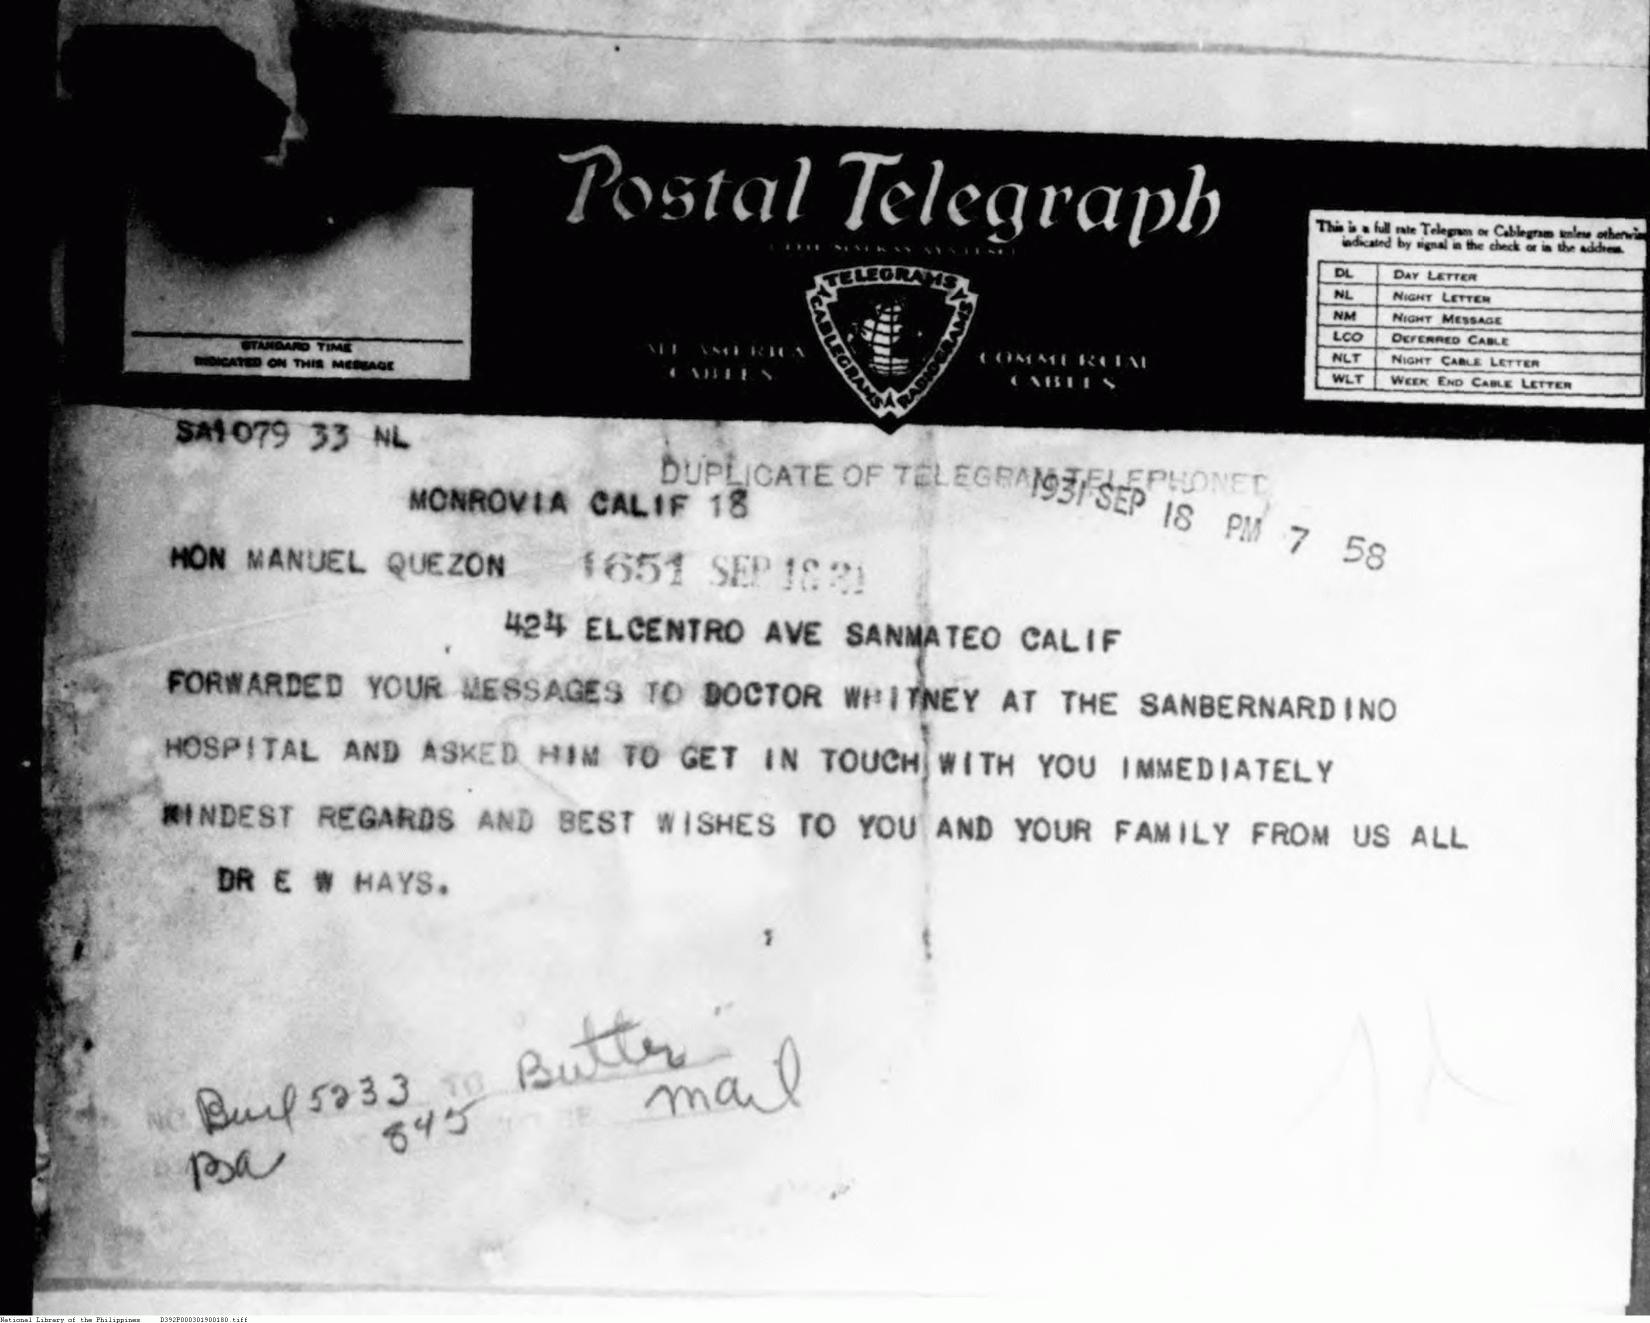 Postal Telegraph
THE MACKAY SYSTEM
This is a full rate Telegram or Cablegram unless otherwise
indicated by signal in the check or in the address.
DL DAY LETTER
NL NIGHT LETTER
NM NIGHT MESSAGE
LCO DEFERRED CABLE
NLT NIGHT CABLE LETTER
WLT WEEK END CABLE LETTER
TELEGRAMS
CABLEGRAMS
RADIOGRAMS
ALL AMERICA
CABLES
COMMERCIAL
CABLES
STANDARD TIME
INDICATED ON THIS MESSAGE
SA1079 33 NL
DUPLICATE OF TELEGRAM TELEPHONED
1931 SEP 18 PM 7 58
MONROVIA CALIF 18
HON MANUEL QUEZON 1651 SEP 18 31
424 ELCENTRO AVE SANMATEO CALIF
FORWARDED YOUR MESSAGES TO DOCTOR WHITNEY AT THE SANBERNARDINO
HOSPITAL AND ASKED HIM TO GET IN TOUCH WITH YOU IMMEDIATELY
KINDEST REGARDS AND BEST WISHES TO YOU AND YOUR FAMILY FROM US ALL
DR E W HAYS.
Burl 5233 TO Butler
845 mail
Ba
National Library of the Philippines D392P000301900180.tiff